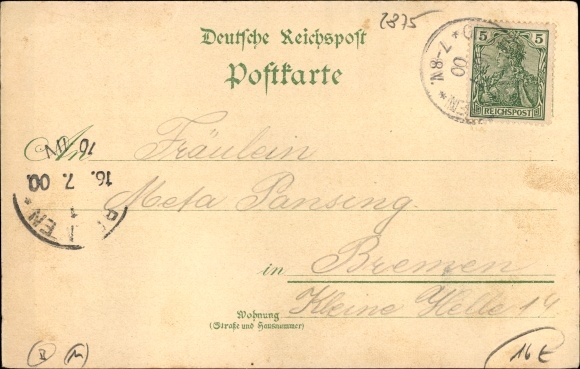 2875
Deutsche Reichspost
Postkarte
5 5
REICHSPOST
7-8V.
00
An Fräulein
Meta Pansing.
in Bremen
Kleine Helle 14
Wohnung
(Straße und Hausnummer)
16. 7. 00.
1
16 E